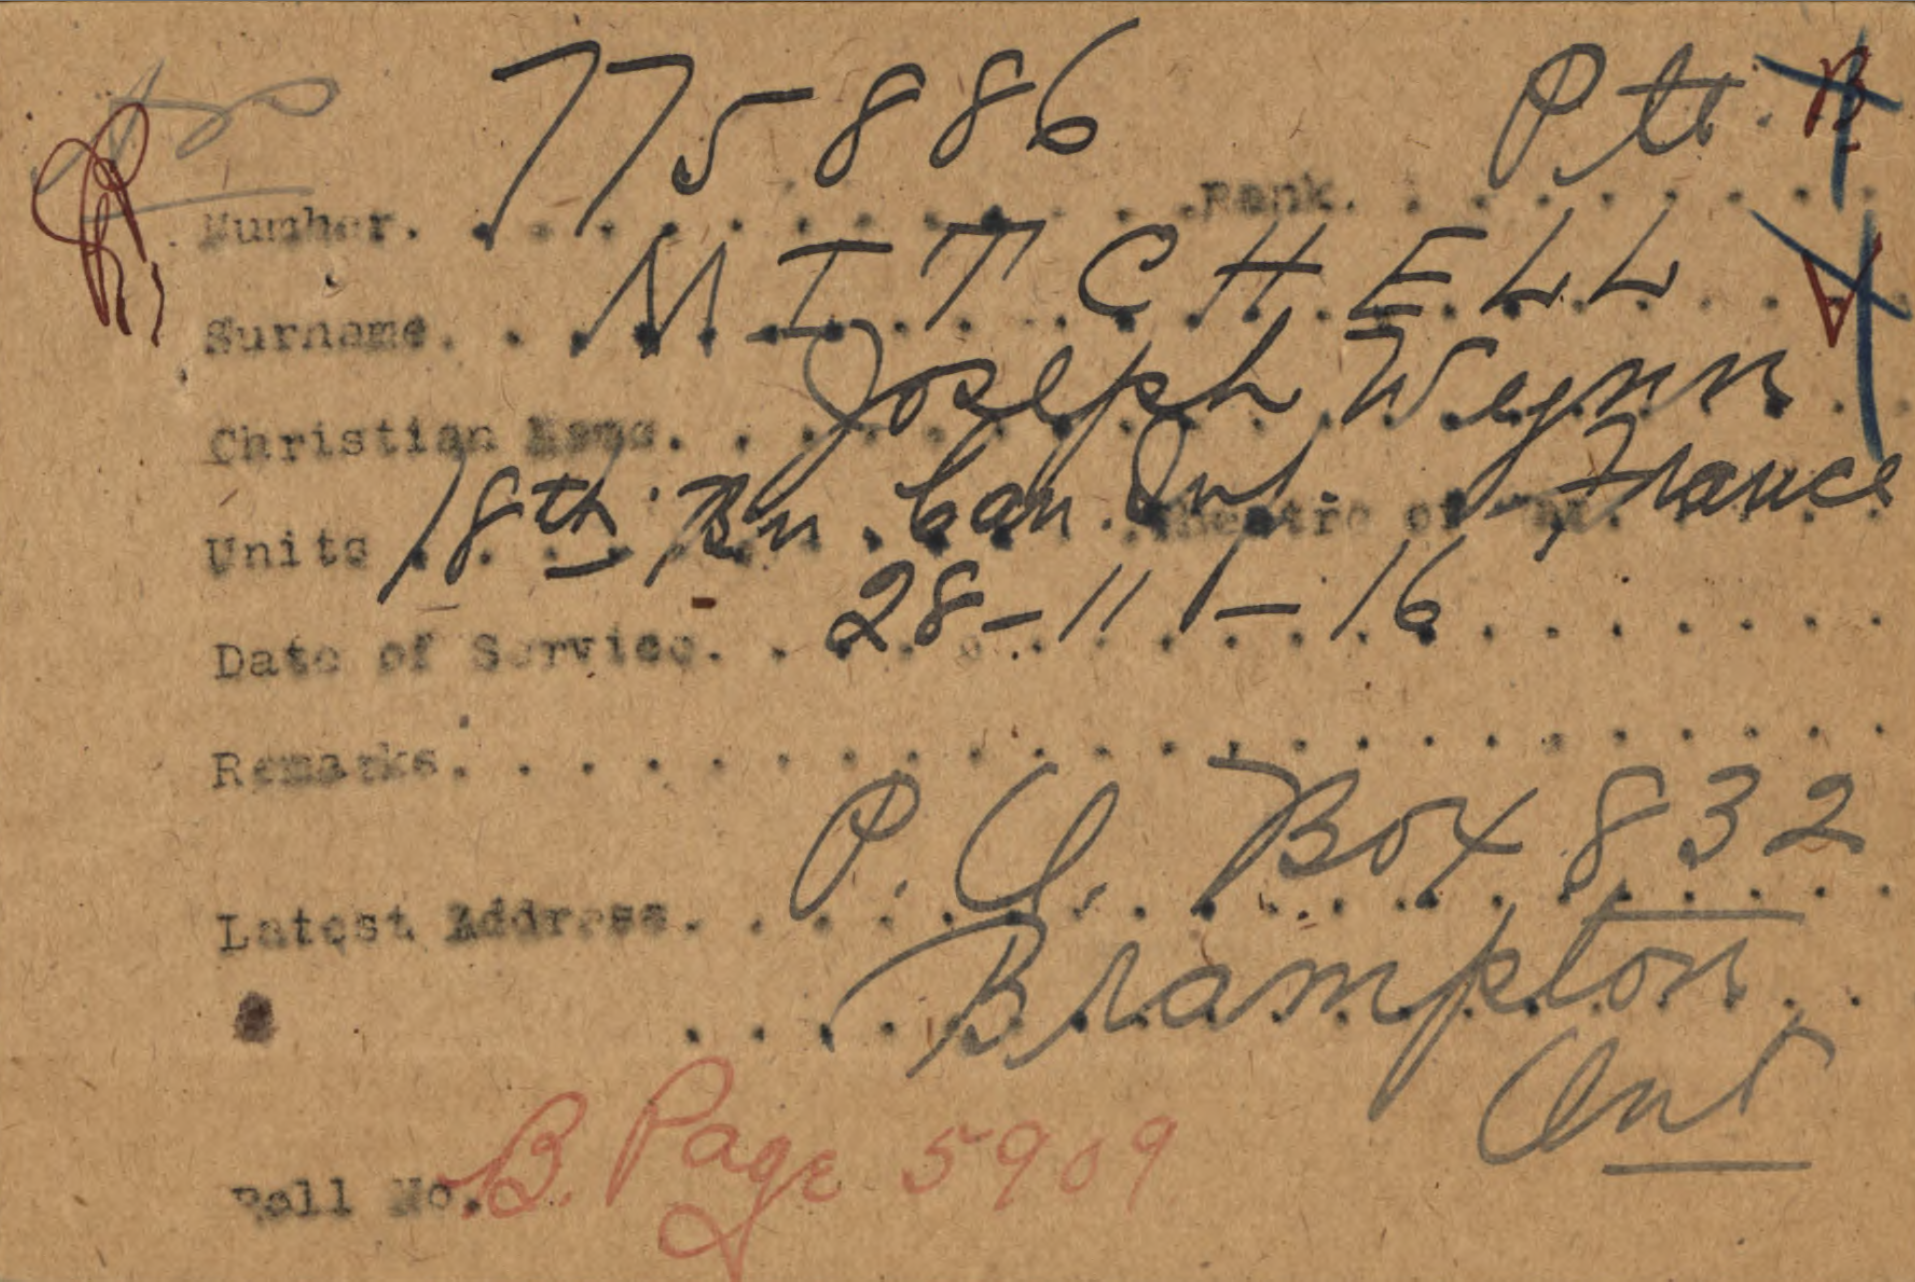 775886 Pte. B
Number. Rank.
Surname. MITCHELL A
Christian Name. Joseph Wynn
Units 18th Bn Can Inf. Theatre of War. France
Date of Service. 28-11-16
Remarks.
P. O. Box 832
Latest Address.
Brampton
Ont
Roll No. B. Page 5909